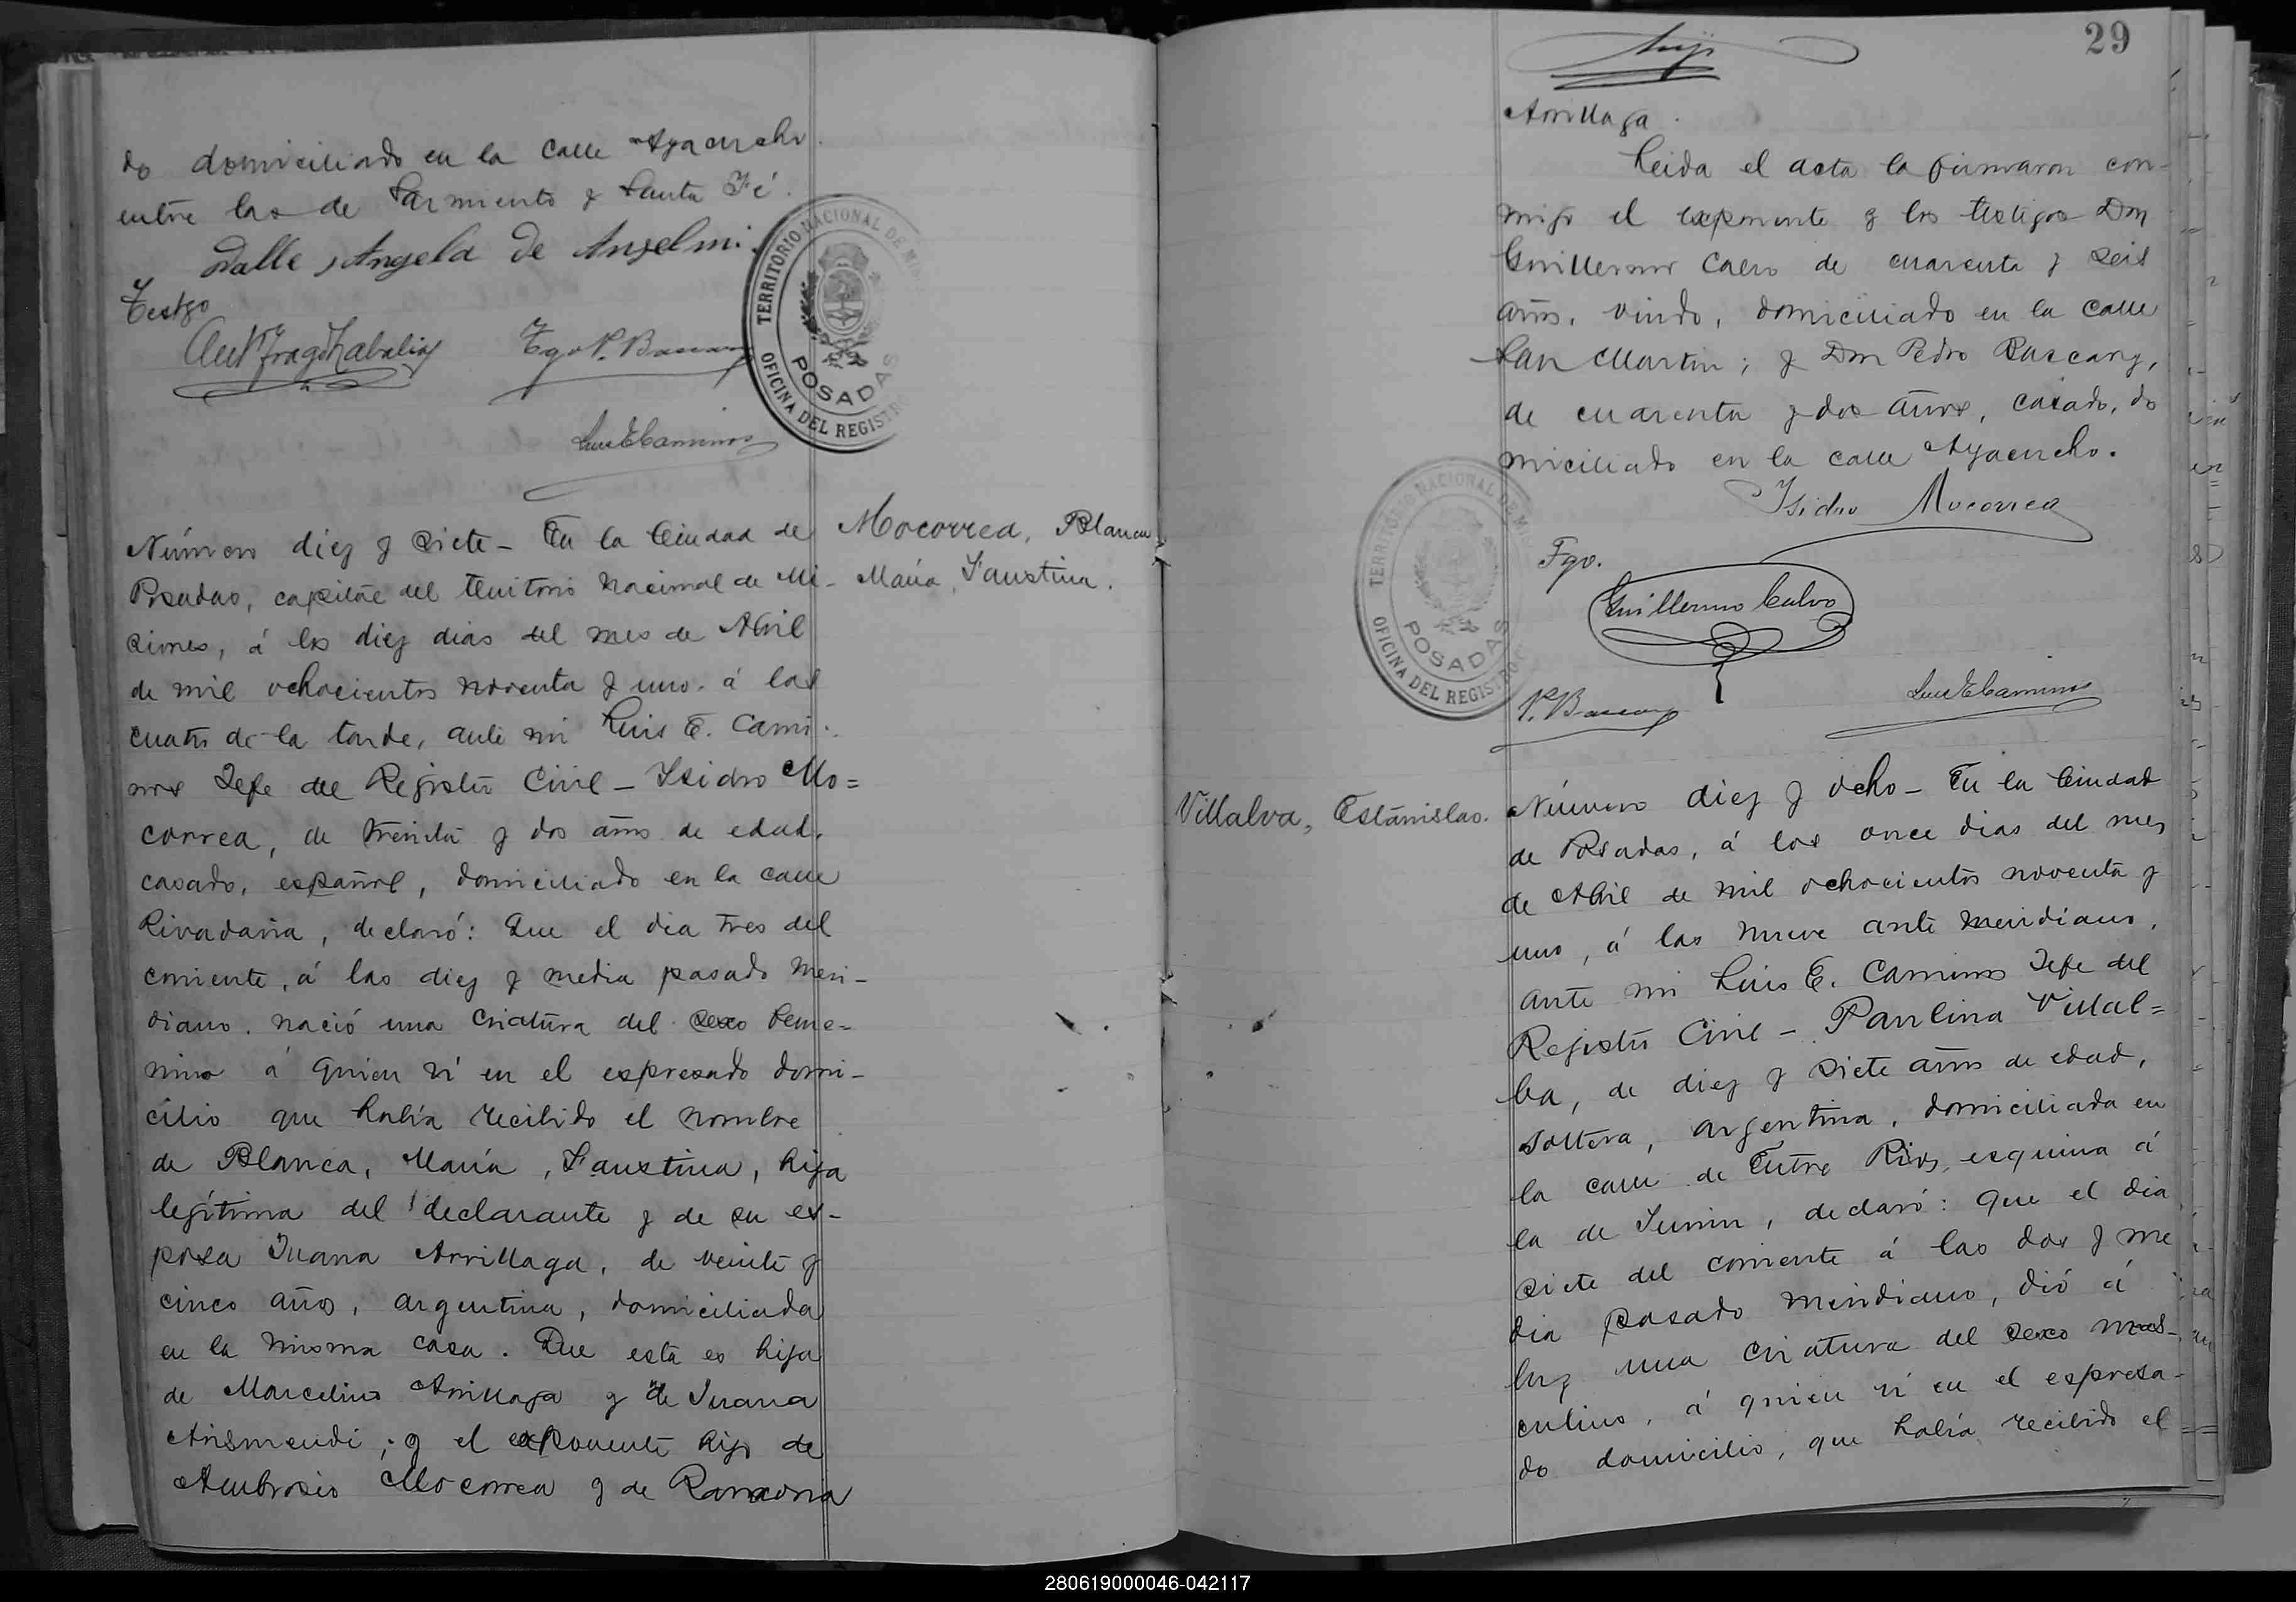 do domiciliado en la calle Ayacucho
entre las de Sarmiento y Santa Fé.
Dalle, Angela De Anselmi.
Testgo
Tgo P. Bascary
Luis E Caminos
TERRITORIO NACIONAL DE MIS
POSADAS
OFICINA DEL REGISTRO
Número diez y siete - En la Ciudad de
Posadas, capital del territorio Nacional de Mi-
siones, á los diez dias del mes de Abril
de mil ochocientos noventa y uno. á las
cuatro de la tarde, ante mi Luis E. Cami-
nos Jefe del Registro Civil - Isidro Mo=
correa, de treinta y dos años de edad.
casado, español, domiciliado en la calle
Rivadavia, declaró: Que el dia tres del
corriente, á las diez y media pasado meri-
diano. nació una criatura del sexo feme-
nino á quien ví en el espresado domi-
cilio que había recibido el nombre
de Blanca, María, Faustina, hija
legítima del declarante y de su es-
posa Juana Arrillaga, de veinte y
cinco años, argentina, domiciliada
en la misma casa. Que esta es hija
de Marcelino Arrillaga y de Juana
Arismendi; y el exponente hijo de
Ambrosio Mocorrea y de Ramona
Mocorrea, Blanca
María, Faustina.
29
Arrillaga.
Leida el acta la firmaron con-
migo el exponente y los testigos Don
Guillermo Calvo de cuarenta y seis
años, viudo, domiciliado en la calle
San Martin; y Don Pedro Bascary,
de cuarenta y dos años, casado, do
miciliado en la calle Ayacucho.
Isidro Mocorrea
Tgo.
Guillermo Calvo
P. Bascary
Luis E Caminos
TERRITORIO NACIONAL DE MIS
POSADAS
OFICINA DEL REGISTRO
Villalva, Estanislao.
Número diez y ocho - En la Ciudad
de Posadas, á los once dias del mes
de Abril de mil ochocientos noventa y
uno, á las nueve ante meridiano,
ante mi Luis E. Caminos Jefe del
Registro Civil - Paulina Villal=
ba, de diez y siete años de edad,
soltera, argentina, domiciliada en
la calle de Entre Rios, esquina á
la de Junin, declaró: que el dia
siete del corriente á las dos y me
dia pasado meridiano, dió á
luz una criatura del sexo mas-
culino, á quien ví en el espresa-
do domicilio, que había recibido el
280619000046-042117